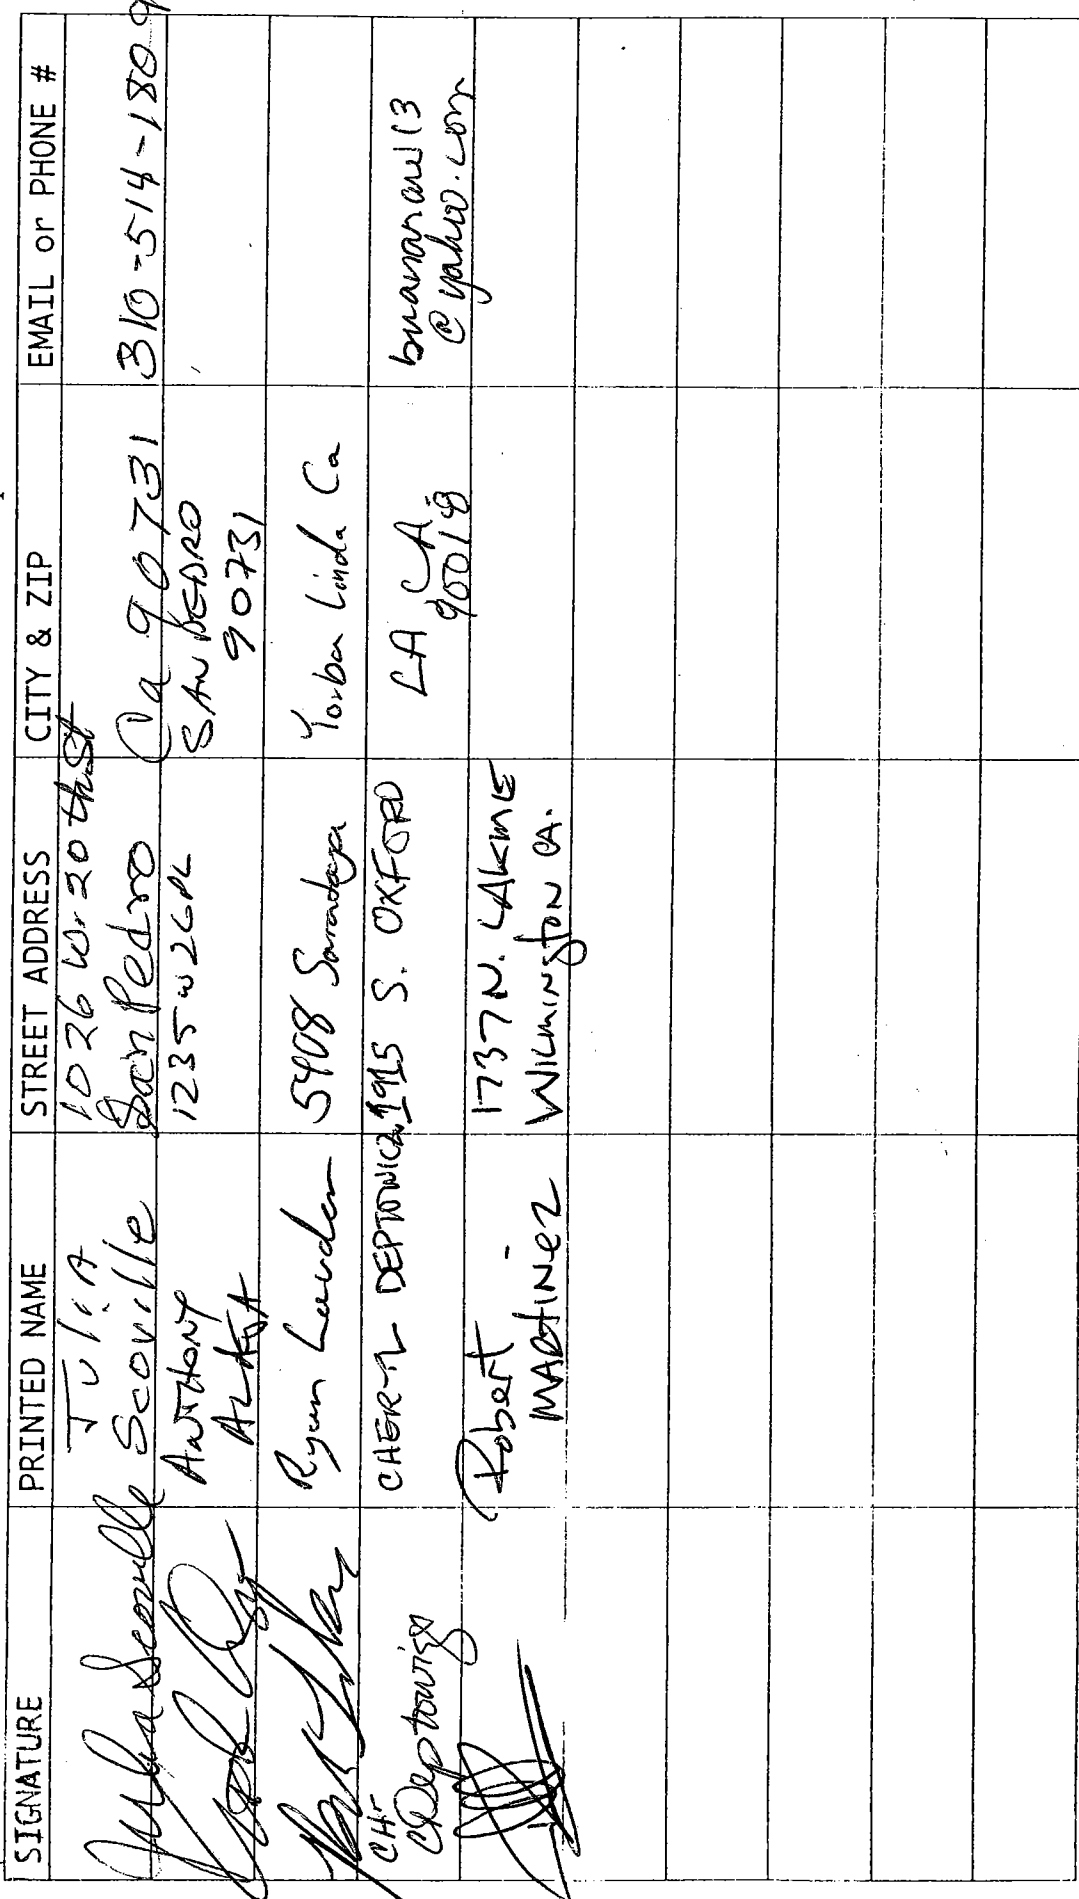 SIGNATURE PRINTED NAME STREET ADDRESS CITY & ZIP EMAIL or PHONE #
Julia Scoville JuliA Scoville 1026 W. 20th St San Pedro Ca 90731 310-514-1809
ANTHONY 1235 W 26 PL SAN PEDRO 90731
Ryan 5908 Saratoga Yorba Linda Ca
CHERYL DEPTOWICZ 1915 S. OXFORD LA CA. 90018 @yahoo.com
Robert MARTINEZ 1737 N. LAKME WILMINGTON CA.